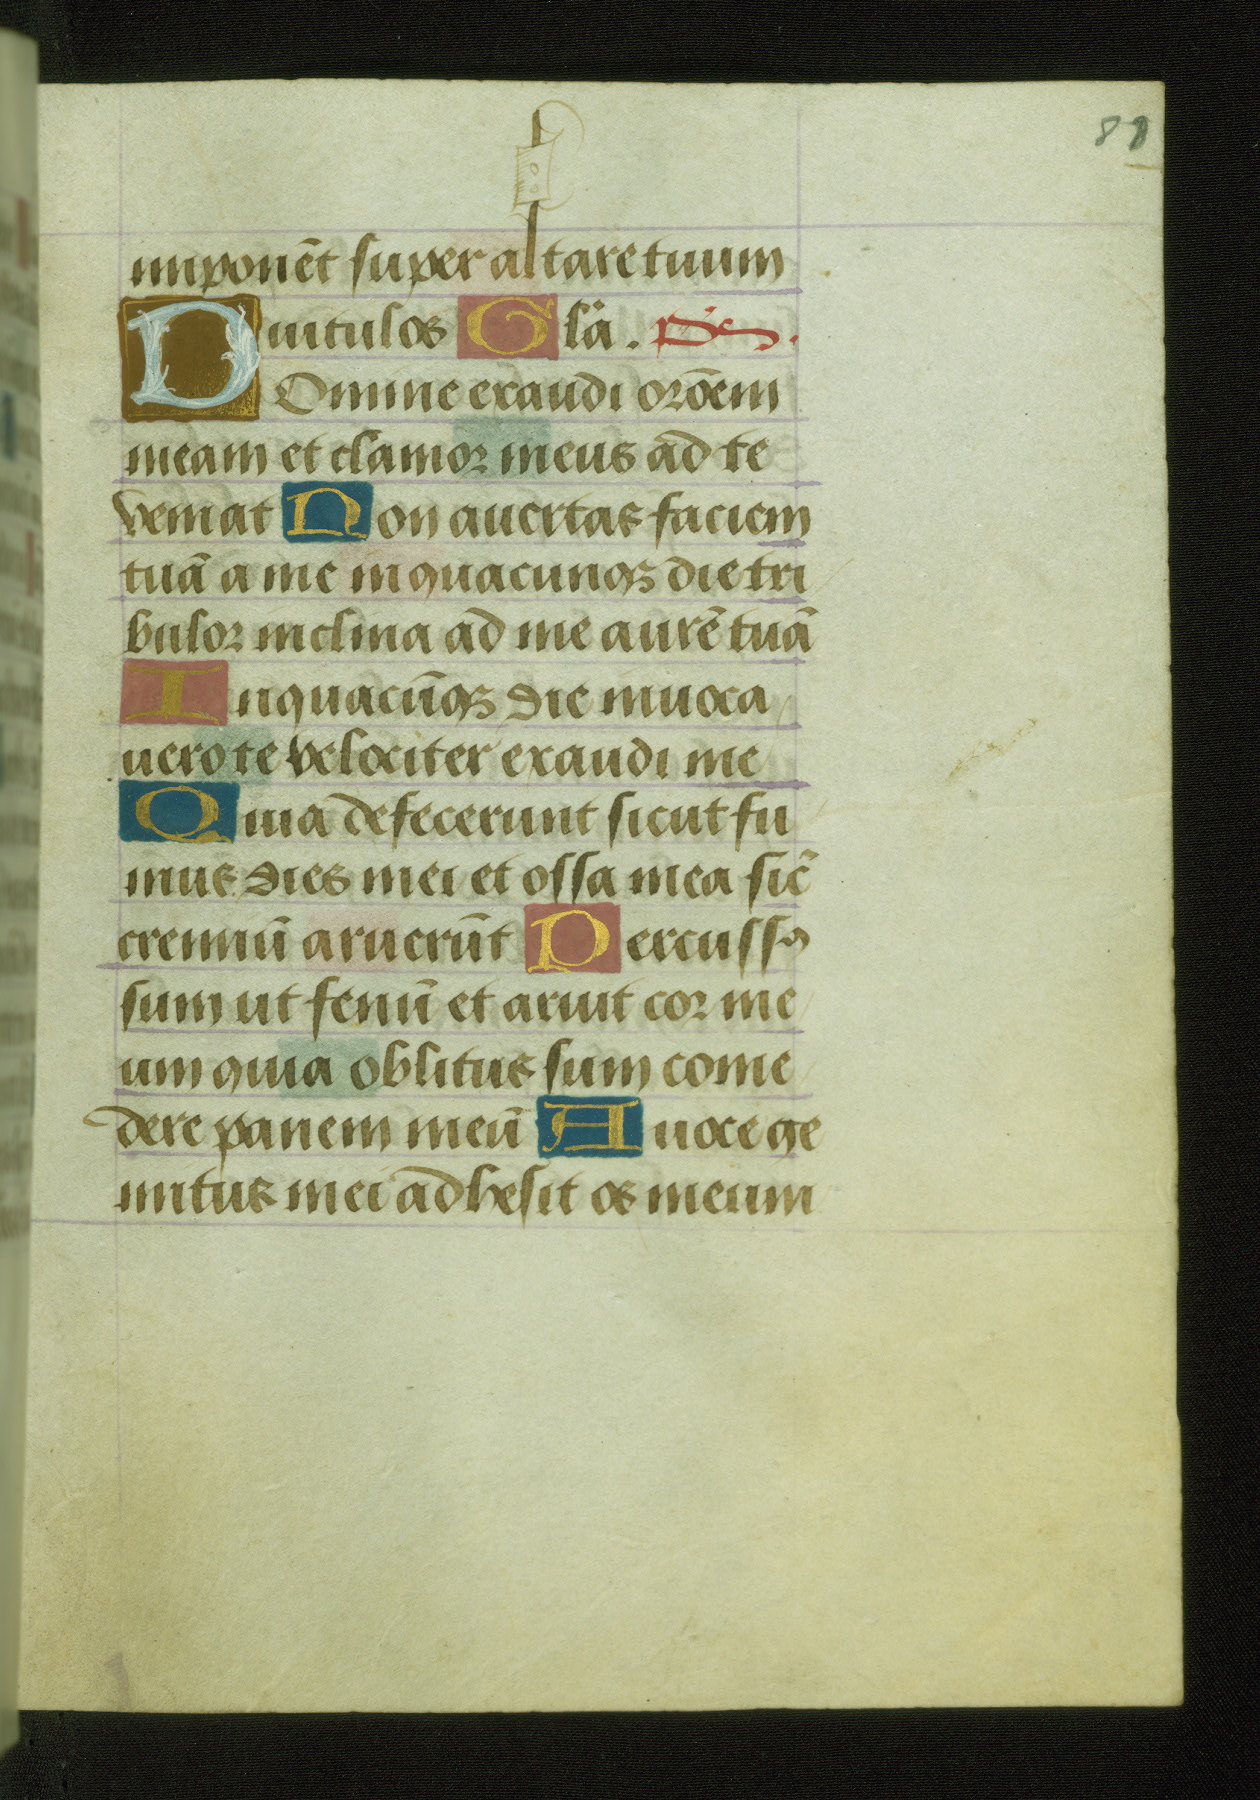 88
imponēt super altare tuum
uitulos Glā. Ps.
DOmine exaudi orōem
meam et clamor meus ad te
veniat Non auertas faciem
tuā a me in quacunqꝫ die tri
bulor inclina ad me aurē tuā
In quacūqꝫ die inuoca
uero te velociter exaudi me
Quia defecerunt sicut fu
mus dies mei et ossa mea sic̄
cremiū aruerūt Percussꝰ
sum ut fenū et aruit cor me
um quia oblitus sum come
dere panem meū A uoce ge
mitus mei adhesit os meum